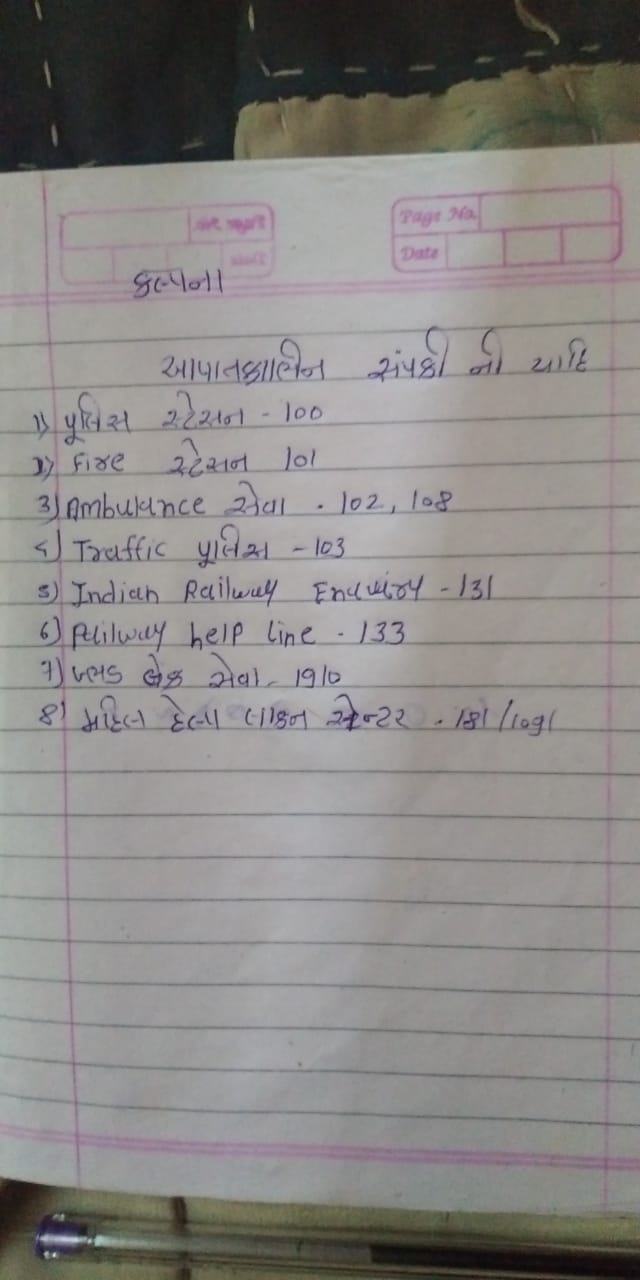 Page No.
Date
કલ્પના
આપાતકાલીન સંપર્કો ની યાદિ
1) પૂલિસ સ્ટેસન - 100
2) Fire સ્ટેસન 101
3) Ambulance સેવા . 102, 108
૮) Traffic પૂલિસ - 103
5) Indian Railway Enquiry - 131
6) Railway help line . 133
7) બ્લડ બેંક સેવા - 1910
8) મહિલા હેલ્પ લાઇન સેન્ટર . 181/1091